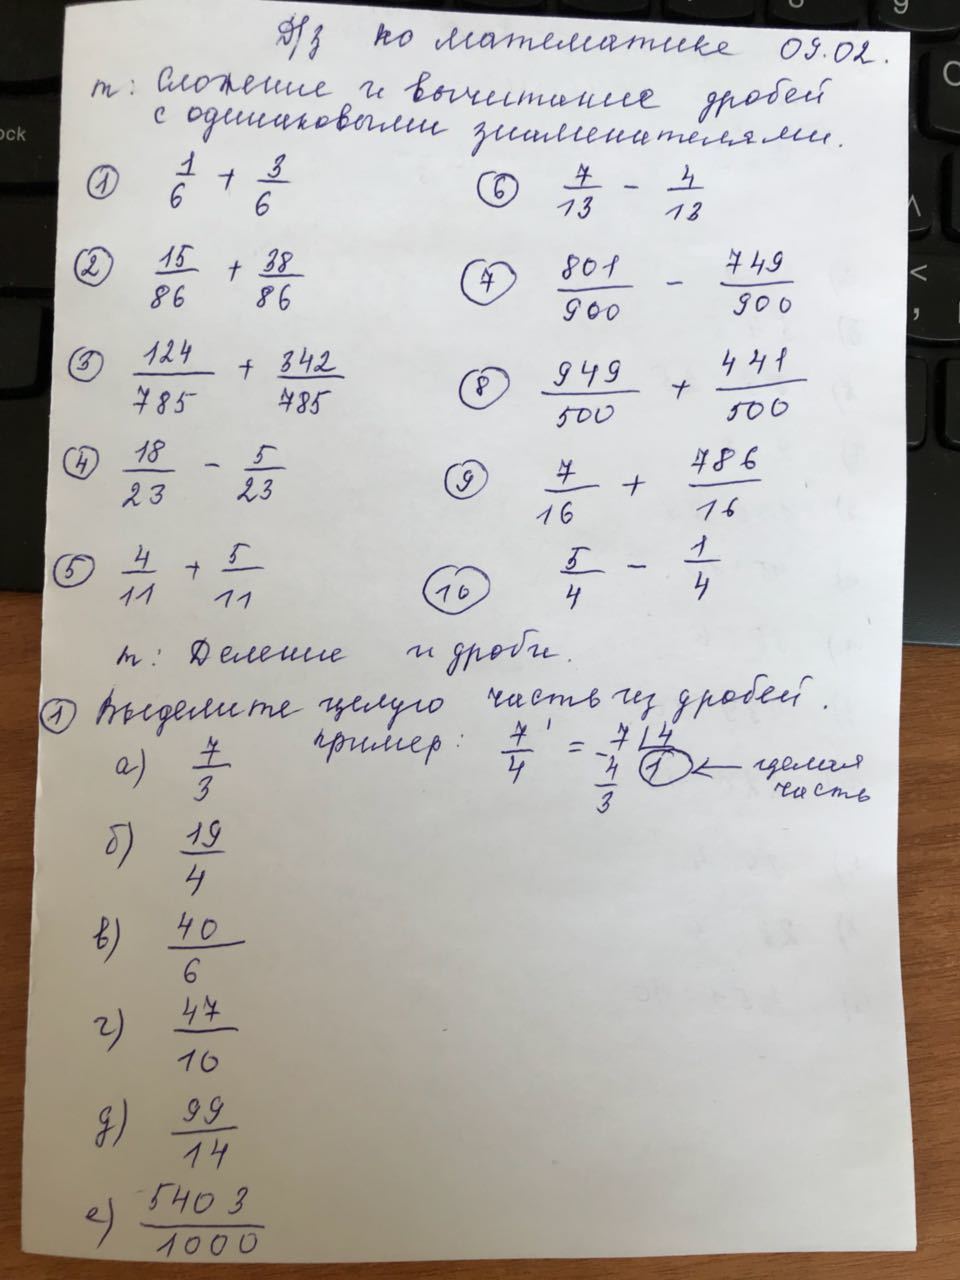 Д/з по математике 09.02.
т: Сложение и вычитание дробей
с одинаковыми знаменателями.
① 1/6 + 3/6
② 15/86 + 38/86
③ 124/785 + 342/785
④ 18/23 - 5/23
⑤ 4/11 + 5/11
⑥ 7/13 - 4/13
⑦ 801/900 - 749/900
⑧ 949/500 + 441/500
⑨ 7/16 + 786/16
⑩ 5/4 - 1/4
т: Деление и дроби.
① Выделите целую часть из дробей.
а) 7/3
пример: 7/4 = 7 | 4
- 4 1 ← целая
3 часть
б) 19/4
в) 40/6
г) 47/10
д) 99/14
е) 5403/1000